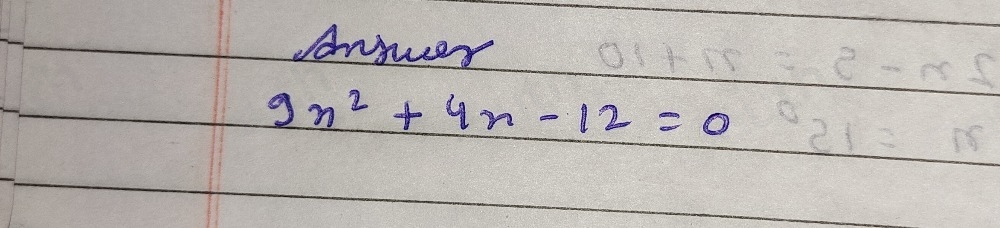 Answer
9x² + 4x - 12 = 0